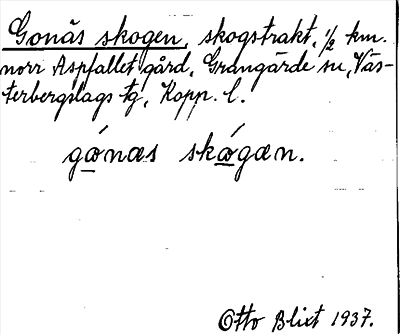 Gonäs skogen, skogstrakt, 1/2 km.
norr Aspfallet gård, Grangärde sn, Väs-
terbergslags tg, Kopp. l.
gó̲næs skǿ̲gæn.
Otto Blixt 1937.